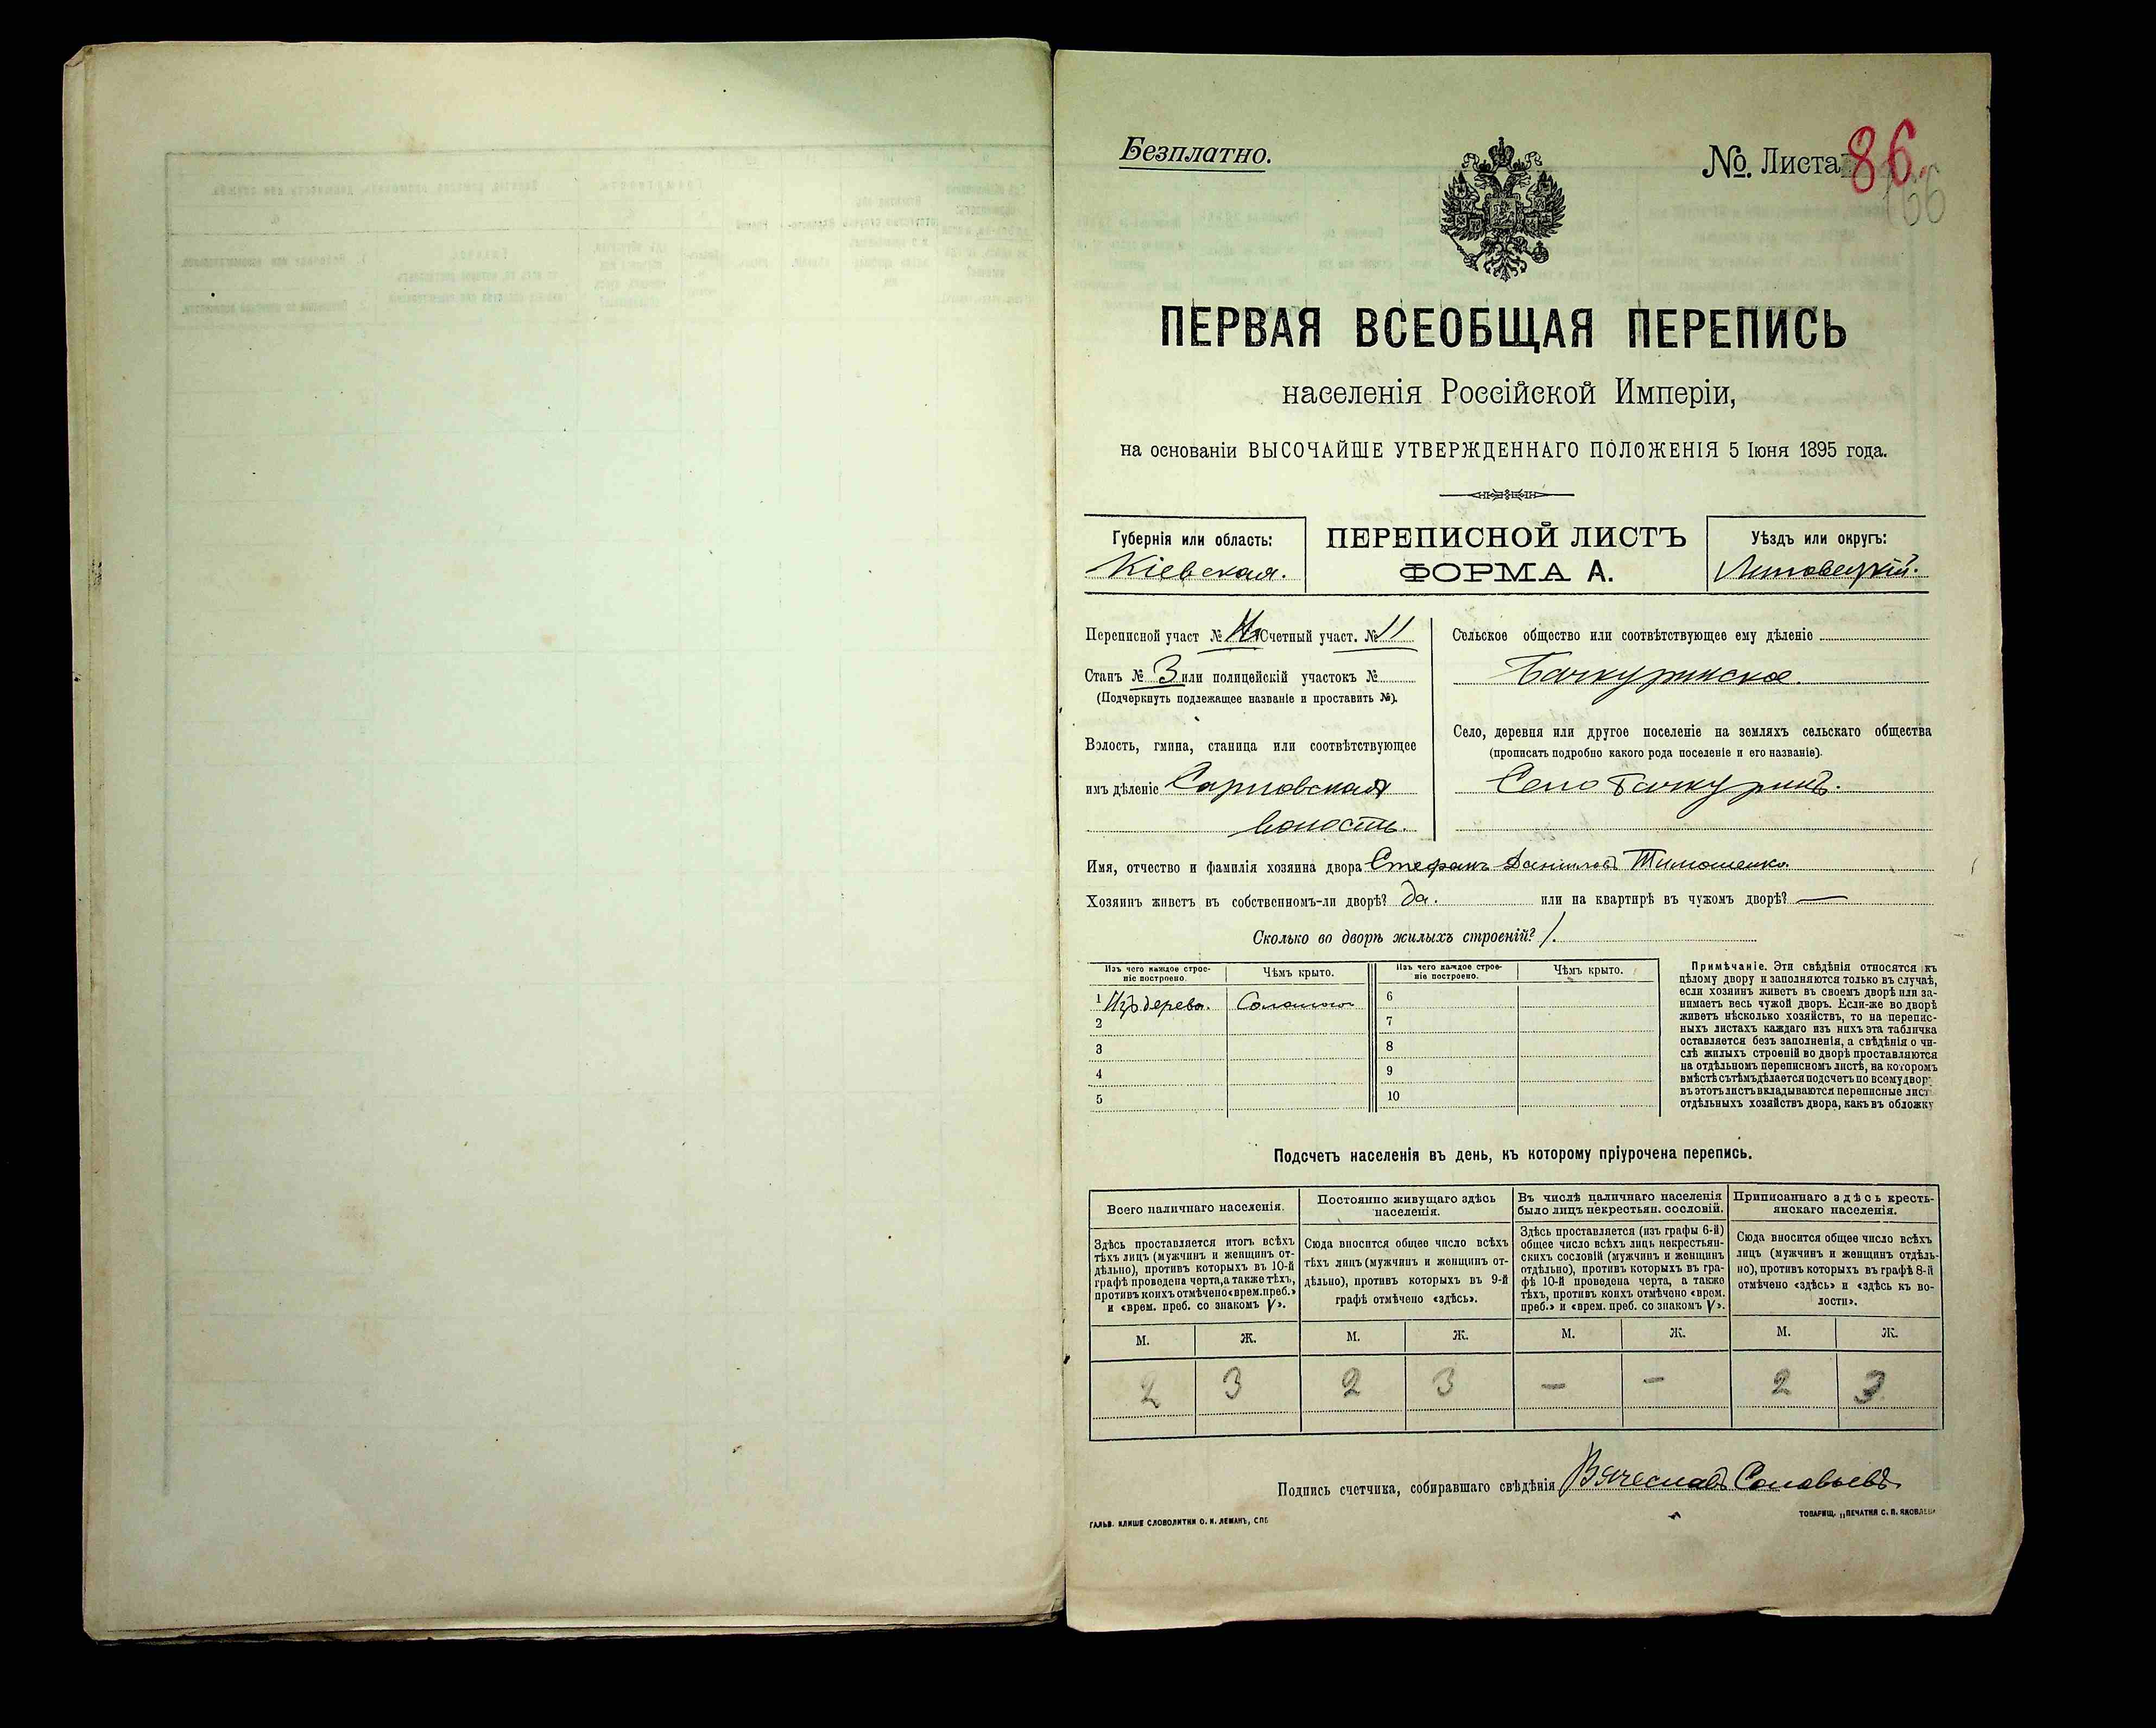 Безплатно.
№. Листа 86.
166
ПЕРВАЯ ВСЕОБЩАЯ ПЕРЕПИСЬ
населенія Россійской Имперіи,
на основаніи ВЫСОЧАЙШЕ УТВЕРЖДЕННАГО ПОЛОЖЕНІЯ 5 Іюня 1895 года.
Губернія или область:
Кіевская.
ПЕРЕПИСНОЙ ЛИСТЪ
ФОРМА А.
Уѣздъ или округъ:
Липовецкій.
Переписной участ № Счетный участ. № 11
Станъ № 3 или полицейскій участокъ №
(Подчеркнуть подлежащее названіе и проставить №).
Волость, гмина, станица или соотвѣтствующее
имъ дѣленіе Сарновская
волость.
Сельское общество или соотвѣтствующее ему дѣленіе
Бачкуринское.
Село, деревня или другое поселеніе на земляхъ сельскаго общества
(прописать подробно какого рода поселеніе и его названіе).
Село Бачкуринъ.
Имя, отчество и фамилія хозяина двора Стефанъ Даниловъ Тимошенко.
Хозяинъ живетъ въ собственномъ-ли дворѣ? да. или на квартирѣ въ чужомъ дворѣ? —
Сколько во дворѣ жилыхъ строеній? 1.
Изъ чего каждое строе-
ніе построено.
Чѣмъ крыто.
Изъ чего каждое строе-
ніе построено.
Чѣмъ крыто.
1 Изъ дерева. Соломою
6
2
7
3
8
4
9
5
10
Примѣчаніе. Эти свѣдѣнія относятся къ
цѣлому двору и заполняются только въ случаѣ,
если хозяинъ живетъ въ своемъ дворѣ или за-
нимаетъ весь чужой дворъ. Если-же во дворѣ
живетъ нѣсколько хозяйствъ, то на перепис-
ныхъ листахъ каждаго изъ нихъ эта табличка
оставляется безъ заполненія, а свѣдѣнія о чи-
слѣ жилыхъ строеній во дворѣ проставляются
на отдѣльномъ переписномъ листѣ, на которомъ
вмѣстѣ съ тѣмъ дѣлается подсчетъ по всему двор
въ этотъ листъ вкладываются переписные лист
отдѣльныхъ хозяйствъ двора, какъ въ обложку
Подсчетъ населенія въ день, къ которому пріурочена перепись.
Всего наличнаго населенія.
Здѣсь проставляется итогъ всѣхъ
тѣхъ лицъ (мужчинъ и женщинъ от-
дѣльно), противъ которыхъ въ 10-й
графѣ проведена черта, а также тѣхъ,
противъ коихъ отмѣчено «врем. преб.»
и «врем. преб. со знакомъ V».
Постоянно живущаго здѣсь
населенія.
Сюда вносится общее число всѣхъ
тѣхъ лицъ (мужчинъ и женщинъ от-
дѣльно), противъ которыхъ въ 9-й
графѣ отмѣчено «здѣсь».
Въ числѣ наличнаго населенія
было лицъ некрестьян. сословій.
Здѣсь проставляется (изъ графы 6-й)
общее число всѣхъ лицъ некрестьян-
скихъ сословій (мужчинъ и женщинъ
отдѣльно), противъ которыхъ въ гра-
фѣ 10-й проведена черта, а также
тѣхъ, противъ коихъ отмѣчено «врем.
преб.» и «врем. преб. со знакомъ V».
Приписаннаго здѣсь кресть-
янскаго населенія.
Сюда вносится общее число всѣхъ
лицъ (мужчинъ и женщинъ отдѣль-
но), противъ которыхъ въ графѣ 8-й
отмѣчено «здѣсь» и «здѣсь къ во-
лости».
М. Ж. М. Ж. М. Ж. М. Ж.
2 3 2 3 — — 2 3
Подпись счетчика, собиравшаго свѣдѣнія Вячеславъ Соловьевъ
ГАЛЬВ. КЛИШЕ СЛОВОЛИТНИ О. И. ЛЕМАНЪ, СПБ
ТОВАРИЩ. „ПЕЧАТНЯ С. П. ЯКОВЛЕВА